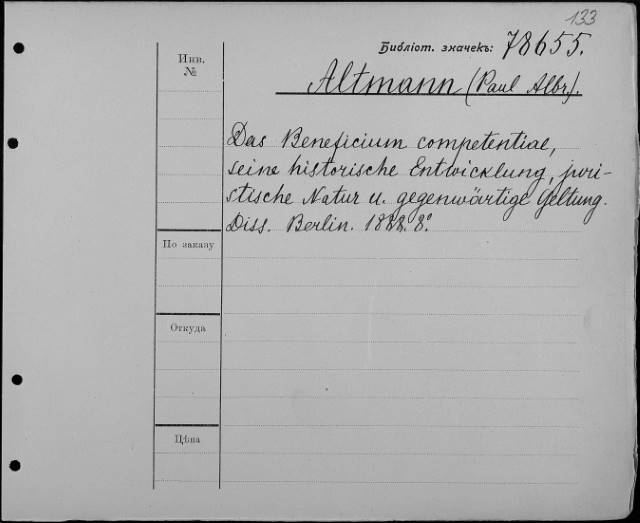 133
Библіот. значекъ: 78655.
Инв.
№
Altmann (Paul Albr).
Das Beneficium competentiae,
seine historische Entwicklung, juri-
stische Natur u. gegenwärtige Geltung.
Diss. Berlin. 1888. 8°.
По заказу
Откуда
Цѣна